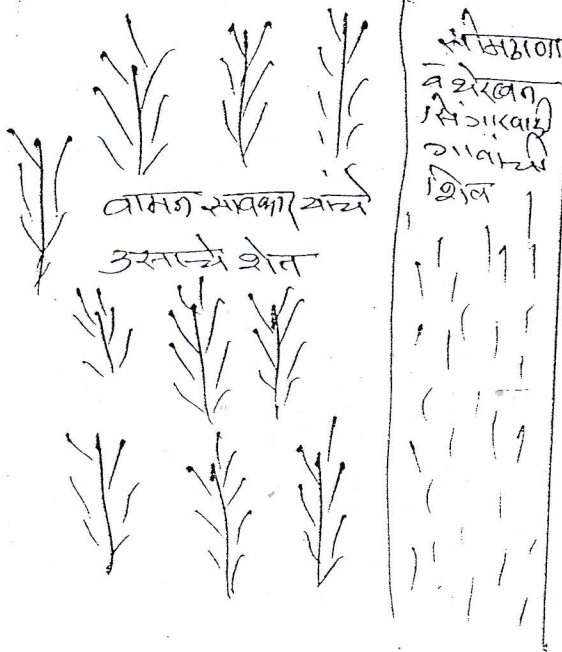 वामन सावकार यांचे
उसाचे शेत
व थेरबन
सिंगारवाडी
गावांची
शिव